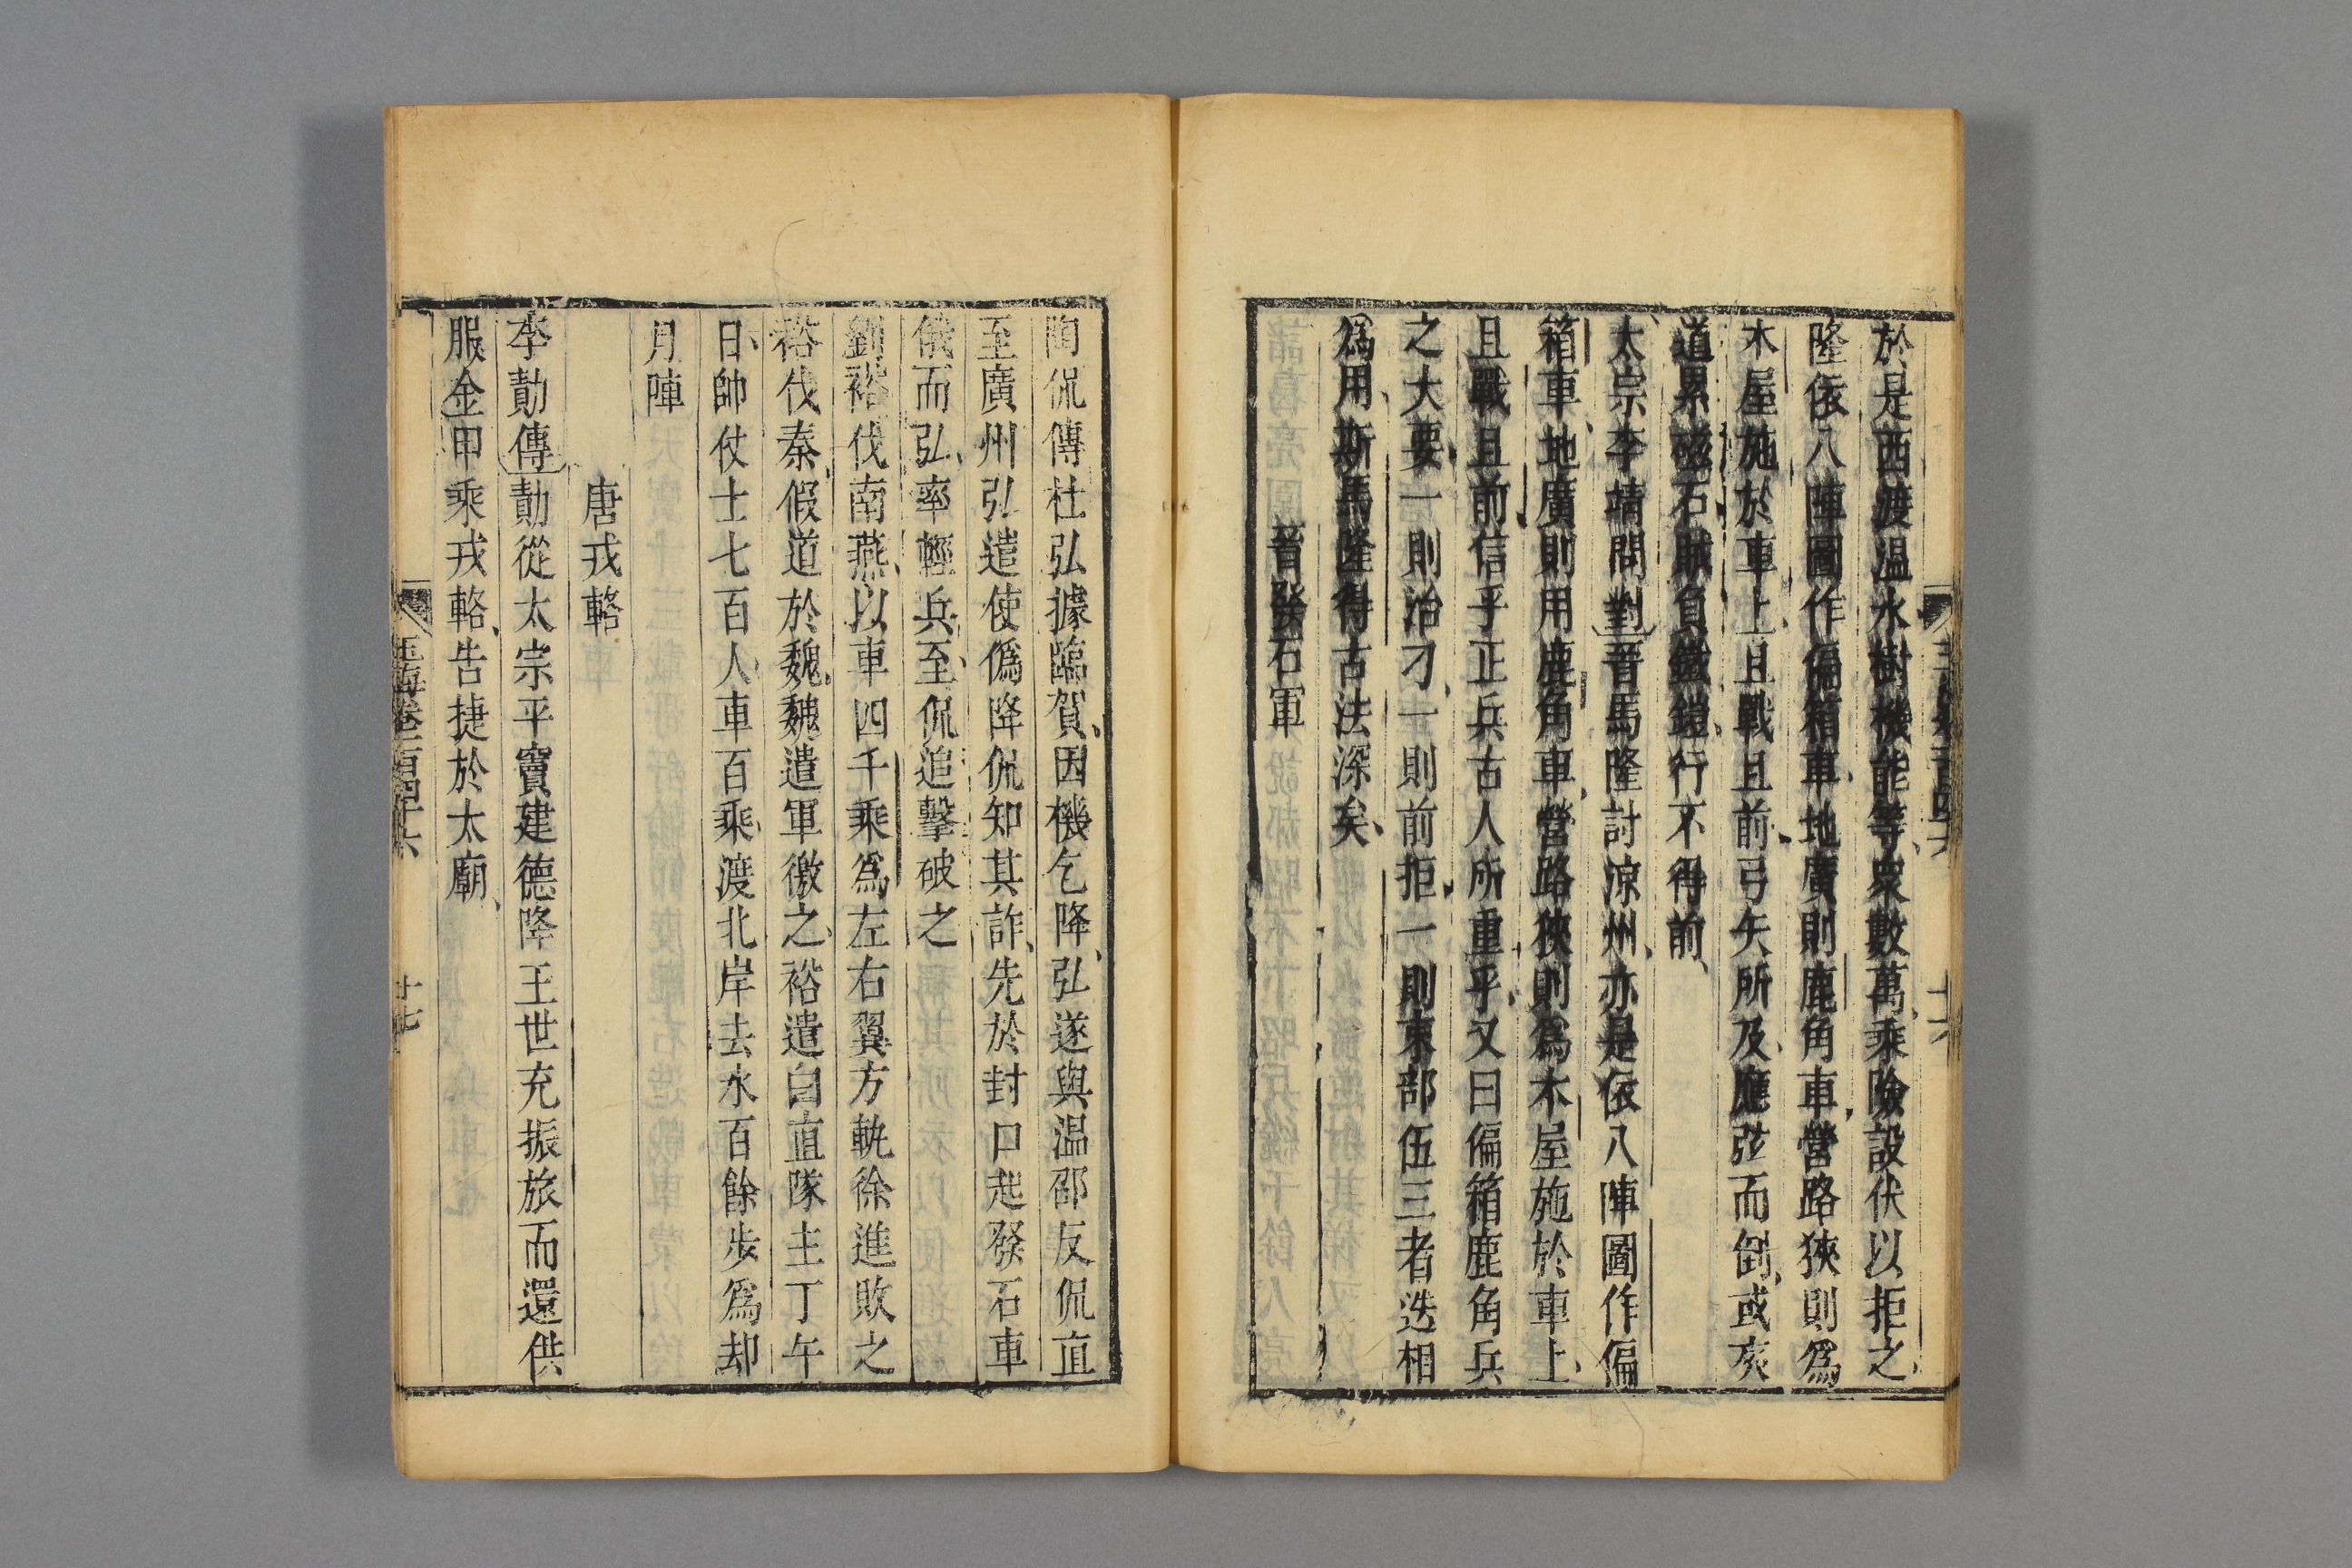 於是西渡温水樹機能等衆數萬乘險設伏以拒之
隆依八陣圖作偏箱車地廣則鹿角車營路狹則爲
木屋施於車上且戰且前弓矢所及應弦而倒或夾
道累磁石賊負鐵鎧行不得前
太宗李靖問對晉馬隆討涼州亦是依八陣圖作偏
箱車地廣則用鹿角車營路狹則爲木屋施於車上
且戰且前信乎正兵古人所重乎又曰偏箱鹿角兵
之大要一則治力一則前拒一則束部伍三者迭相
爲用斯馬隆得古法深矣
晉發石軍
陶侃傳杜弘據臨賀因機乞降弘遂與温邵反侃直
至廣州弘遣使僞降侃知其詐先於封口起發石車
俄而弘率輕兵至侃追擊破之
劉裕伐南燕以車四千乘爲左右翼方軌徐進敗之
裕伐秦假道於魏魏遣軍徼之裕遣白直隊主丁午
日帥仗士七百人車百乘渡北岸去水百餘步爲却
月陣
唐戎輅
李勣傳勣從太宗平竇建德降王世充振旅而還供
服金甲乘戎輅告捷於太廟
玉海卷一百四十六
十七